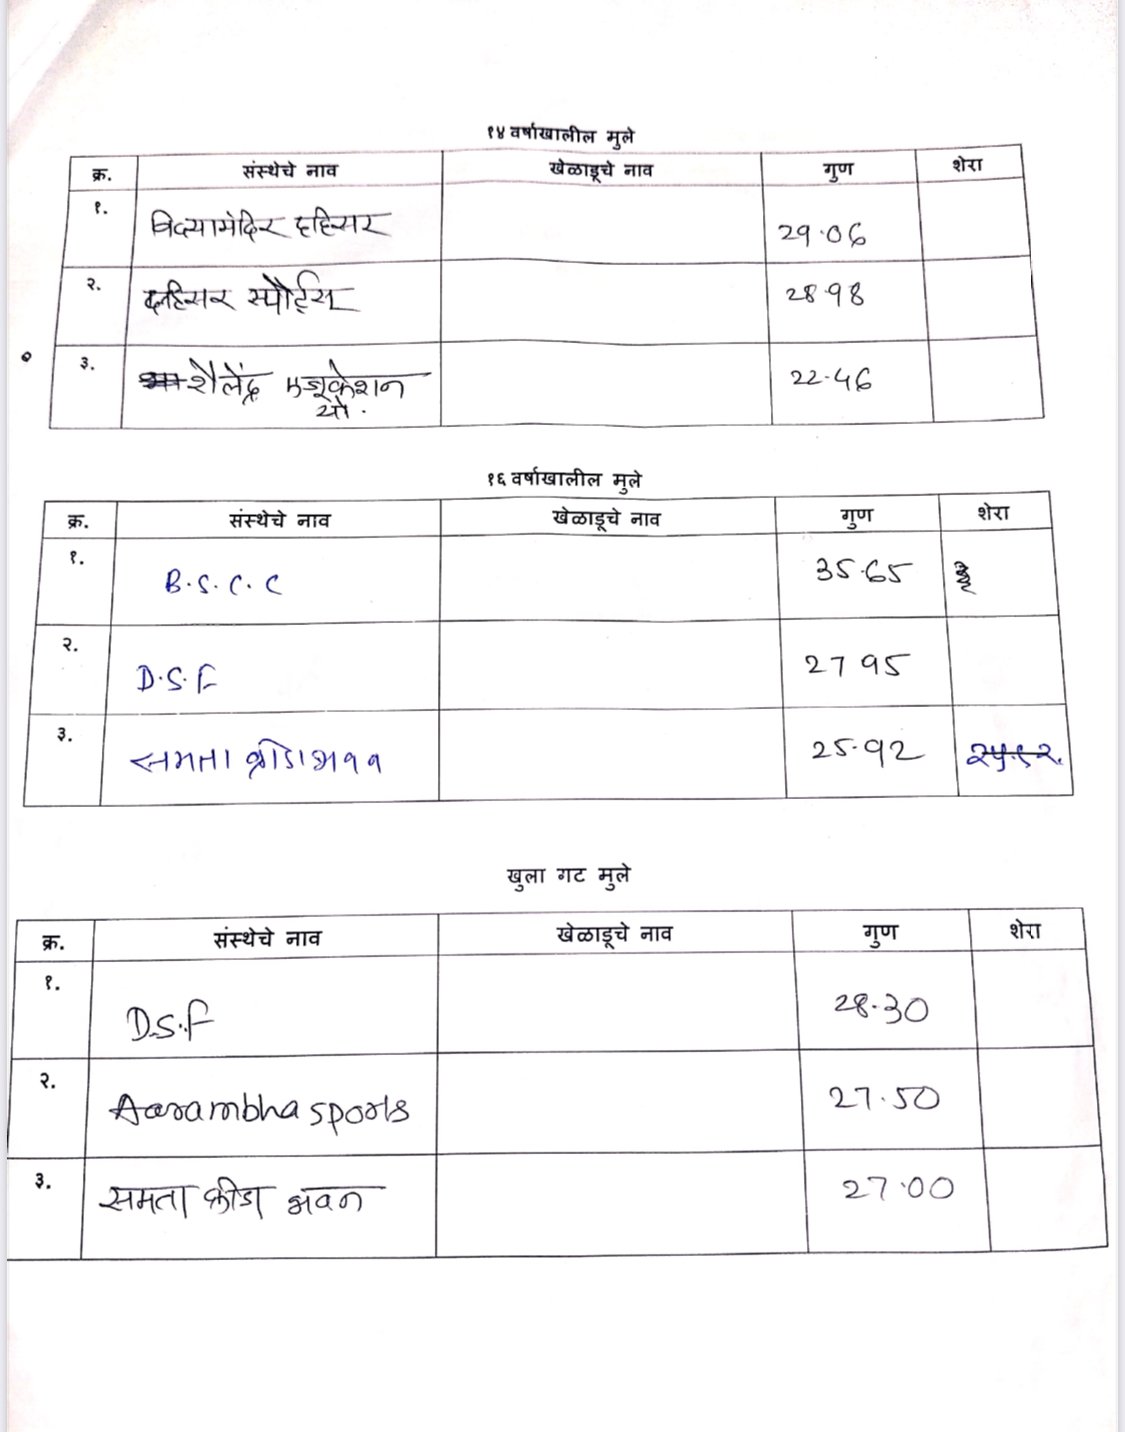 १४ वर्षाखालील मुले
क्र. संस्थेचे नाव खेळाडूचे नाव गुण शेरा
१. विद्यामंदिर दहिसर 29.06
२. दहिसर स्पोर्ट्स 28.98
३. शैलेंद्र एज्युकेशन 22.46
सो.
१६ वर्षाखालील मुले
क्र. संस्थेचे नाव खेळाडूचे नाव गुण शेरा
१. B.S.C.C 35.65
२. D.S.F 27 95
३. समता क्रीडा भवन 25.92 २५.९२.
खुला गट मुले
क्र. संस्थेचे नाव खेळाडूचे नाव गुण शेरा
१. D.S.F 28.30
२. Aarambha sports 27.50
३. समता क्रीडा भवन 27.00